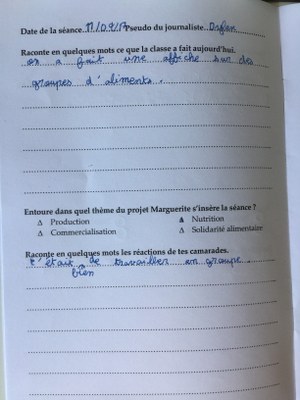 Date de la séance 17/09/17 Pseudo du journaliste Dylan
Raconte en quelques mots ce que la classe a fait aujourd'hui.
on a fait une affiche sur des
groupes d'aliments.
Entoure dans quel thème du projet Marguerite s'insère la séance ?
Δ Production
▲ Nutrition
Δ Commercialisation
Δ Solidarité alimentaire
Raconte en quelques mots les réactions de tes camarades.
c'était de travailler en groupe.
bien